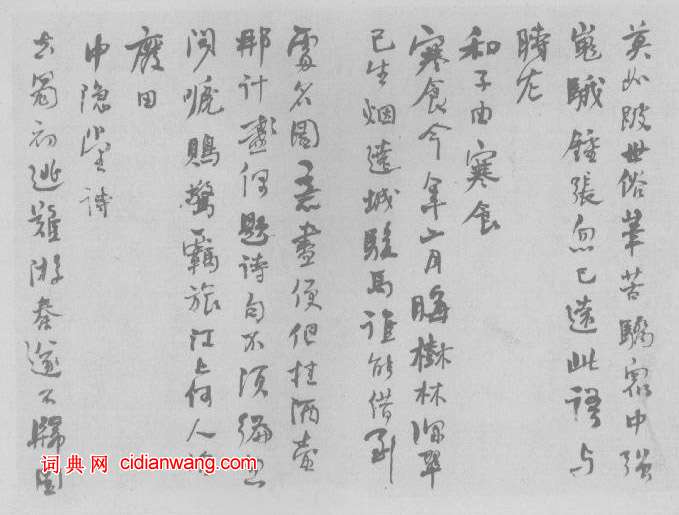 莫如跛世俗筆苦驕衆中強
嵬騀鍾張忽已遠此語与
時左
和子由寒食
寒食今年二月晦樹林深翠
已生烟遶城駿馬誰能借到
處名園意盡便但挂酒壺
那計盞偶題诗句不須編忽
闻嗁鵙驚羈旅江上何人治
廢田
中隐堂詩
去蜀初逃難游秦遂不歸園
词典网 cidianwang.com